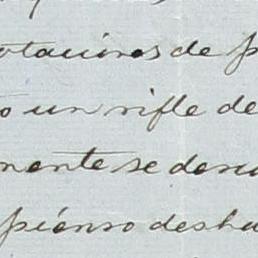 otaciones de p
o un rifle de
mente se desc
pienso desha